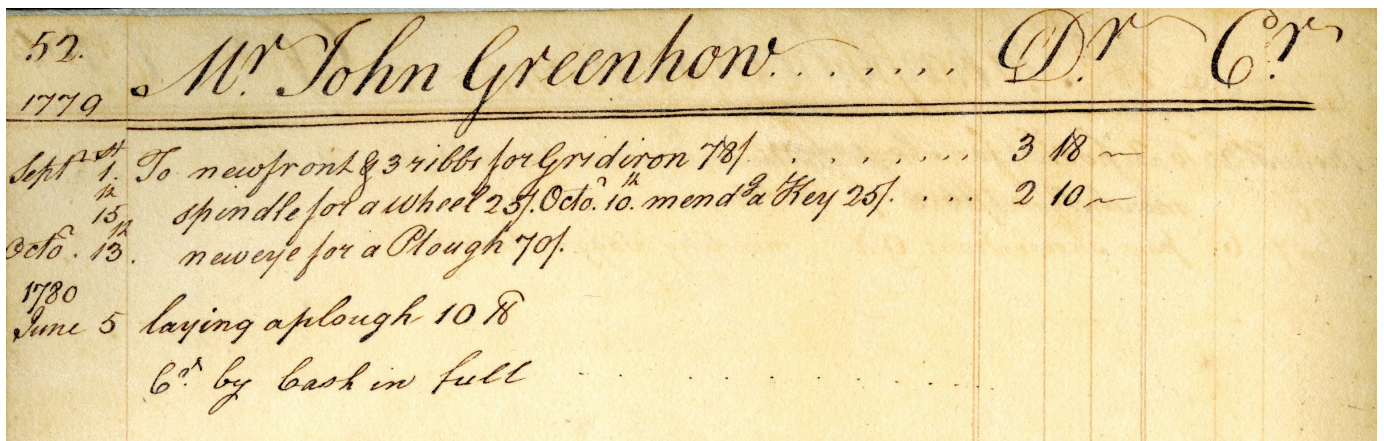 52. Mr. John Greenhow......... Dr. Cr.
1779
Septr. 1st. To new front & 3 ribbs for Gridiron 78/. .......... 3 18 ~
15th spindle for a Wheel 25/. Octor. 10th. mendg. a Key 25/. .... 2 10 ~
Octor. 13th. new eye for a Plough 70/.
1780
June 5 laying a plough 10 lb
Cr. by Cash in full ............